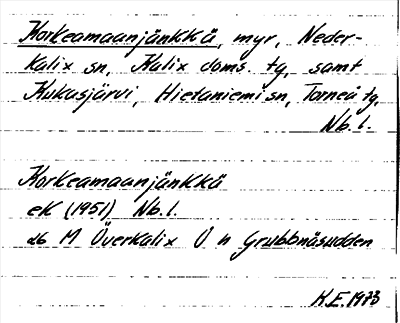 Korkeamaanjänkkä, myr, Neder-
Kalix sn, Kalix doms. tg, samt
Kukasjärvi, Hietaniemi sn, Torneå tg,
Nb. l.
Korkeamaanjänkkä
eK (1951) Nb. l.
db M Överkalix Ö n Grubbnäsudden
K.E. 1973